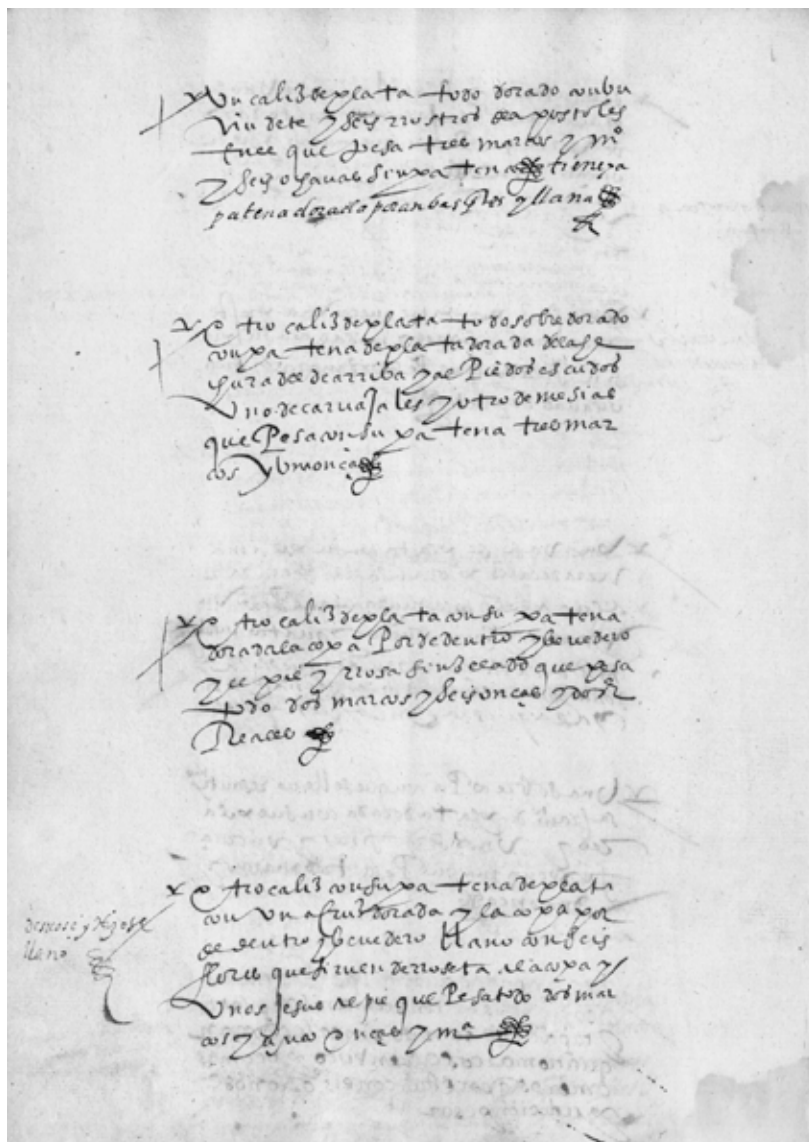 Un caliz de plata todo dorado con un
vin dete y seis rrostros de apostoles
en el que pesa tres marcos y mº
y seis ochavas sin patena tiene
patena dorada por anbas ptes y llana
otro caliz de plata todo sobredorado
con patena de plata dorada de la he
chura del de arriba y al Pie dos escudos
Uno de carvajales y otro de mesias
que Pesa con su patena tres mar
cos y una onça
otro caliz de plata con su patena
dorada la copa Por de dentro y bevedero
y el pie y rrosa sinzelado que pesa
todo dos marcos y seis onças y dos
Reales
otro caliz con su patena de plata
con Una cruz dorada y la copa por
de dentro y bevedero llano con seis
flores que sirven de rroseta a la copa y
Unos Jesus al pie que Pesa todo dos mar
cos y cinco onças y mª
llano